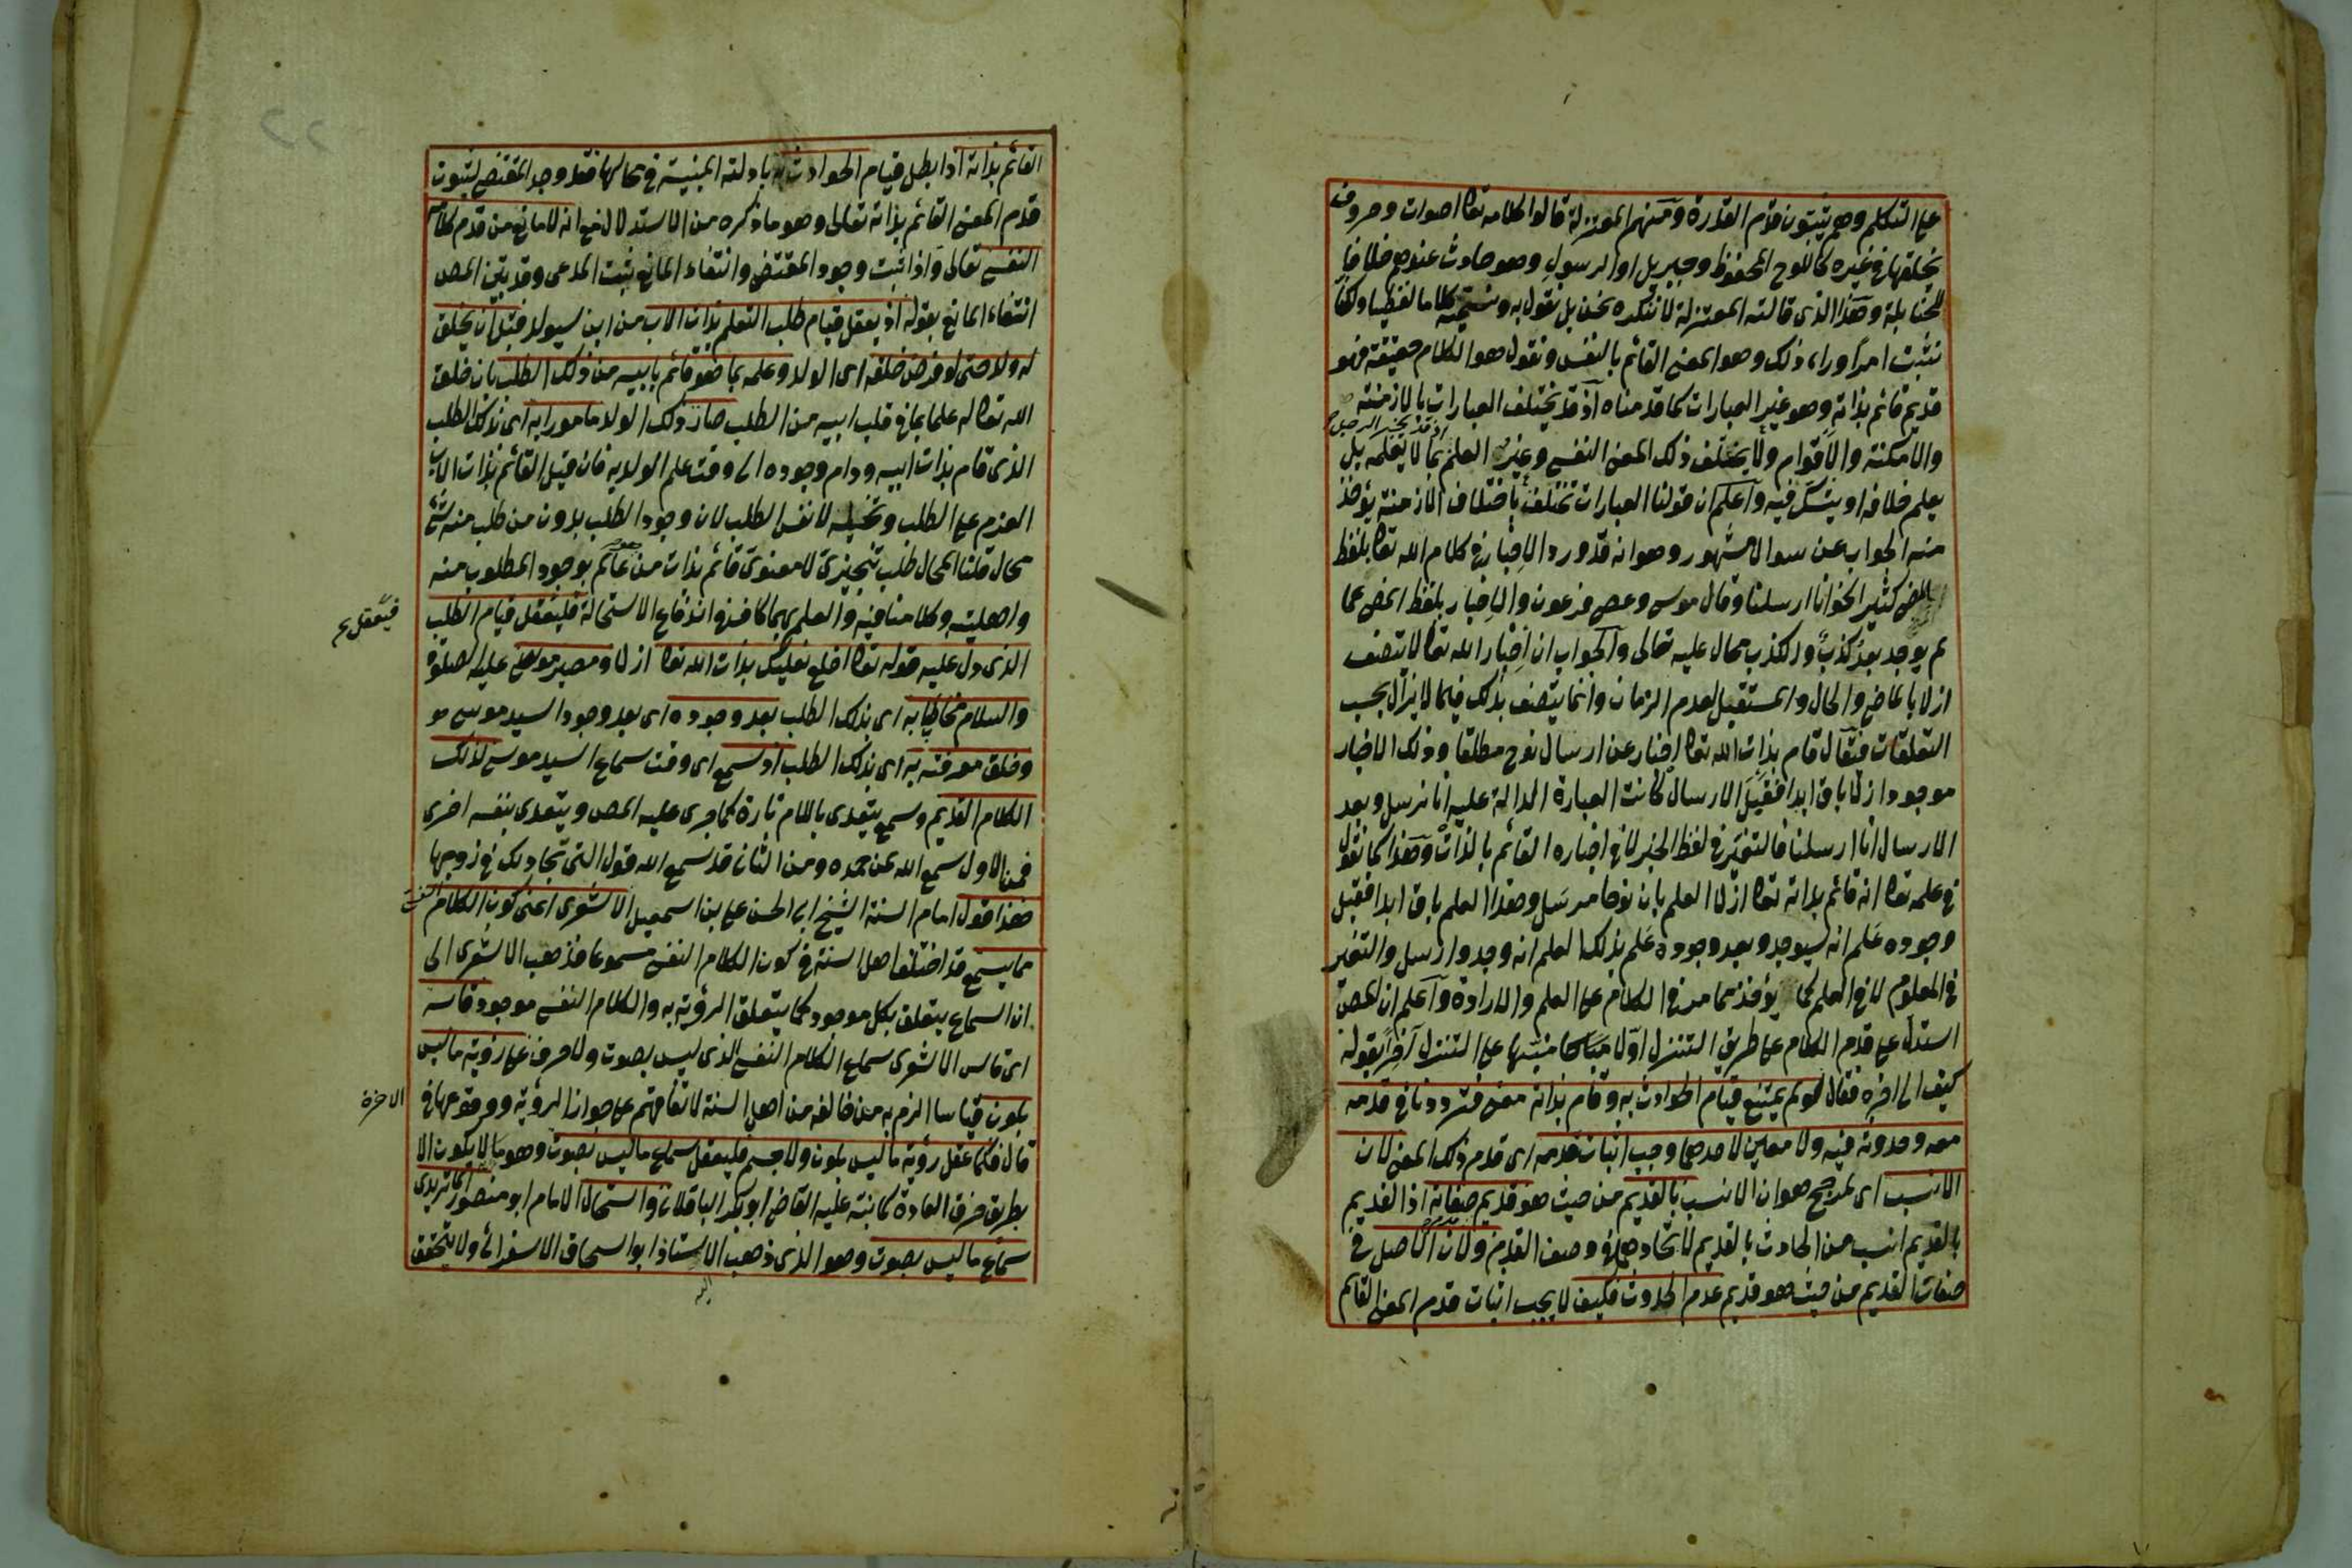 على التكلم وهم يثبتون قدم القدرة ومنهم المعتزلة قالوا كلامه تعا اصوات وحروف
يخلقها في غيره كاللوح المحفوظ وجبريل او الرسول وهو حادث عندهم خلافا
للحنابلة وهذا الذي قالته المعتزلة لا ننكره نحن بل نقول به ونسميه كلاما لفظيا ولكنا
نثبت امرا وراء ذلك وهو المعنى القائم بالنفس ونقول هو الكلام حقيقة فهو
قديم قائم بذاته وهو غير العبارات كما قدمناه اذ قد يختلف العبارات بالازمنة
والامكنة والاقوام ولا يختلف ذلك المعنى النفسي وغير العلم اذ قد يخبر الرجل بما لا يعلمه بل
يعلم خلافه او يشك فيه واعلم ان قولنا العبارات تختلف باختلاف الازمنة يؤخذ
منه الجواب عن سوال مشهور وهو انه قد ورد الاخبار في كلام الله تعا بلفظ
المضي كثيرا نحو انا ارسلنا وقال موسى وعصى فرعون والاخبار بلفظ المضي عما
لم يوجد بعد كذب والكذب محال عليه تعالى والجواب ان اخبار الله تعا لا يتصف
ازلا بالماضي والحال والمستقبل لعدم الزمان وانما يتصف بذلك فيما لا يزال بحسب
التعلقات فيقال قام بذات الله تعا اخبار عن ارسال نوح مطلقا وذلك الاخبار
موجود ازلا باق ابدا فقبل الارسال كانت العبارة الدالة عليه انا نرسل وبعد
الارسال انا ارسلنا فالتغير في لفظ الخبر لا في اخباره القائم بالذات وهذا كما نقول
في علمه تعا انه قائم بذاته تعا ازلا العلم بان نوحا مرسل وهذا العلم باق ابدا فقبل
وجوده علم انه سيوجد وبعد وجوده علم بذلك العلم انه وجد وارسل والتغير
في المعلوم لا في العلم كما يؤخذ مما مر في الكلام على العلم والارادة واعلم ان المصنف
استدل على قدم الكلام على طريق التنزل اولا منبها على التنزل آخرا بقوله
كيف الى اخره فقال لو لم يمتنع قيام الحوادث به وقام بذاته معنى فترددنا في قدمه
معه وحدوثه فيه ولا معين لاحدهما وجب اثبات قدمه اي قدم ذلك المعنى لان
الانسب اي المرجح هو ان الانسب بالقديم من حيث هو قديم صفاته اذ القديم
بالقديم انسب من الحادث بالقديم لاتحادهما في وصف القدم ولان الاصل في
صفات القديم من حيث هو قديم عدم الحدوث فكيف لا يجب اثبات قدم المعنى القائم
القائم بذاته اذا بطل قيام الحوادث به بادلته المبنية في محالها فقد وجد المقتضي لثبوت
قدم المعنى القائم بذاته تعالى وهو ما ذكره من الاستدلال مع انه لا مانع من قدم كلام
النفس تعالى واذا ثبت وجود المقتضي وانتفاء المانع يثبت المدعى وقد بين المص
انتفاء المانع بقوله اذ يعقل قيام طلب التعلم بذات الاب من ابن سيولد قبل ان يخلق
له ولد حتى لو فرض خلقه اي الولد وعلمه بما هو قائم بابيه من ذلك الطلب بان خلق
الله تعا له علما بما في قلب ابيه من الطلب صار ذلك الولد مامورا به اي بذلك الطلب
الذي قام بذات ابيه ودام وجوده الى وقت علم الولد به فان قيل القائم بذات الاب
العزم على الطلب وتخيله لا نفس الطلب لان وجود الطلب بدون من طلب منه شيء
محال قلنا المحال طلب تنجيزي لا معنوي قائم بذات من هو عالم بوجود المطلوب منه
واهليته وكلامنا فيه والعلم بهما كاف في اندفاع الاستحالة فليتعقل قيام الطلب
فيتعقل
الذي دل عليه قوله تعا اخلع نعليك بذات الله تعا ازلا ومصير موسى عليه الصلوة
والسلام مخاطبا به اي بذلك الطلب بعد وجوده اي بعد وجود السيد موسى
وخلق معرفته به اي بذلك الطلب اذ سمع اي وقت سماع السيد موسى لذلك
الكلام القديم وسمع يتعدى باللام تارة كما جرى عليه المص ويتعدى بنفسه اخرى
فمن الاول سمع الله لمن حمده ومن الثاني قد سمع الله قول التي تجادلك في زوجها
هذا قول امام السنة الشيخ ابي الحسن علي بن اسمعيل الاشعري اعني كون الكلام النفسي
مما يسمع قد اختلف اهل السنة في كون الكلام النفسي مسموعا فذهب الاشعري الى
ان السماع يتعلق بكل موجود كما يتعلق الرؤية به والكلام النفسي موجود قاسه
اي قاس الاشعري سماع الكلام النفسي الذي ليس بصوت ولا حرف على رؤية ما ليس
بلون قياسا الزم به من خالفه من اهل السنة لاتفاقهم على جواز الرؤية ووقوعها في
الاخرة
قال فكما عقل رؤية ما ليس بلون ولا جسم فليعقل سماع ما ليس بصوت وهو ما لا يكون الا
بطريق خرق العادة كما نبه عليه القاضي ابو بكر الباقلاني واستحال الامام ابو منصور الماتريدي
سماع ما ليس بصوت وهو الذي ذهب اليه الاستاذ ابو اسحاق الاسفرائني ولا يتحقق